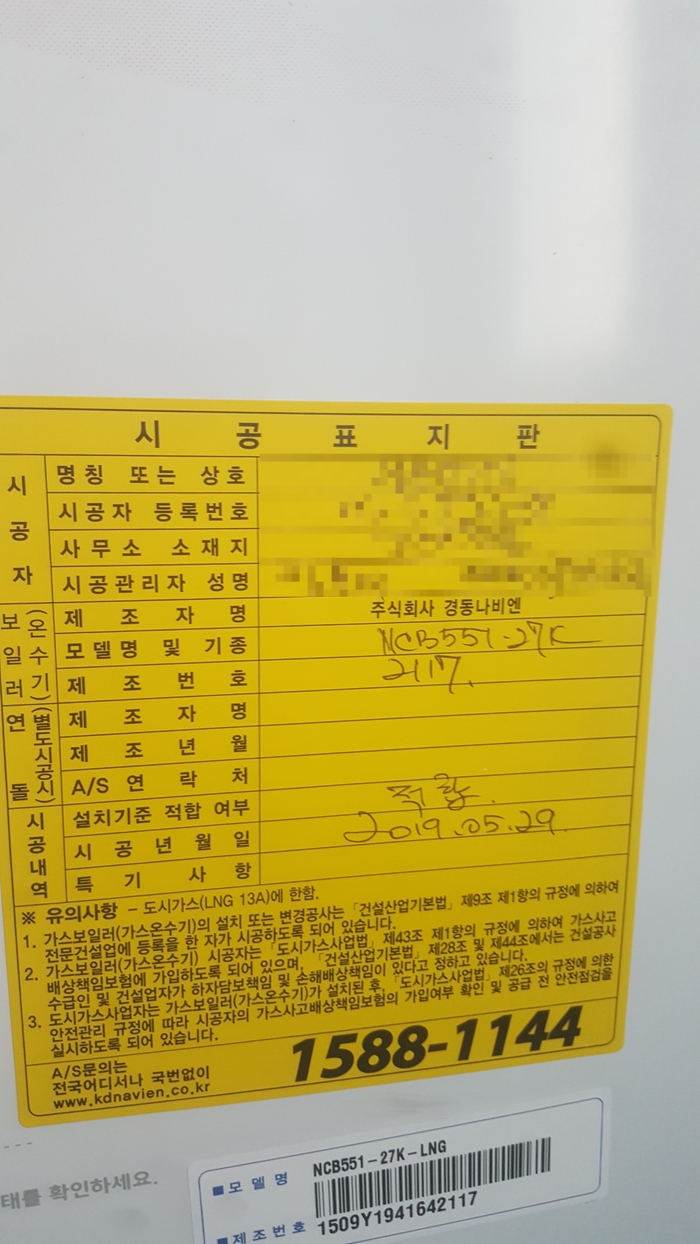 시공표지판
시공자
명칭 또는 상호
시공자 등록번호
사무소 소재지
시공관리자 성명
보일러(온수기)
제조자명 주식회사 경동나비엔
모델명 및 기종 NCB551-27K
제조번호 2117.
연돌(별도시공시)
제조자명
제조년월
A/S 연락처
시공내역
설치기준 적합 여부 적합.
시공년월일 2019.05.29.
특기사항
※ 유의사항 - 도시가스(LNG 13A)에 한함.
1. 가스보일러(가스온수기)의 설치 또는 변경공사는 「건설산업기본법」 제9조 제1항의 규정에 의하여
전문건설업에 등록을 한 자가 시공하도록 되어 있습니다.
2. 가스보일러(가스온수기) 시공자는 「도시가스사업법」 제43조 제1항의 규정에 의하여 가스사고
배상책임보험에 가입하도록 되어 있으며, 「건설산업기본법」 제28조 및 제44조에서는 건설공사
수급인 및 건설업자가 하자담보책임 및 손해배상책임이 있다고 정하고 있습니다.
3. 도시가스사업자는 가스보일러(가스온수기)가 설치된 후, 「도시가스사업법」 제26조의 규정에 의한
안전관리 규정에 따라 시공자의 가스사고배상책임보험의 가입여부 확인 및 공급 전 안전점검을
실시하도록 되어 있습니다.
A/S문의는
전국어디서나 국번없이
www.kdnavien.co.kr
1588-1144
태를 확인하세요.
■모델명 NCB551-27K-LNG
■제조번호 1509Y1941642117